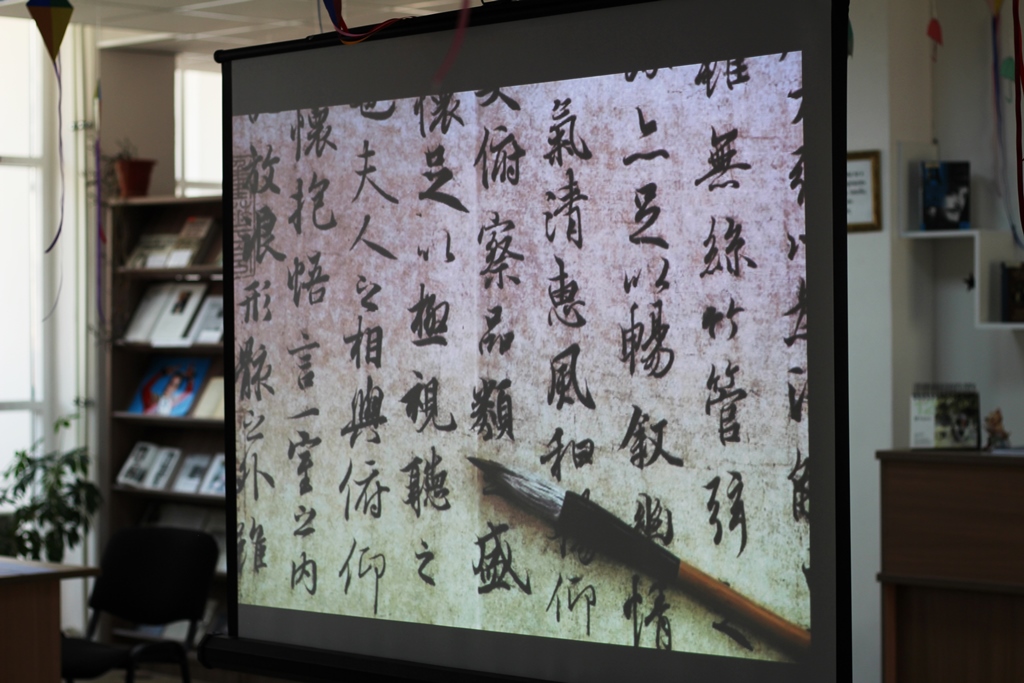 雖無絲竹管弦之
亦足以暢敘幽情
氣清惠風和暢仰
大俯察品類盛
懷足以極視聽之
也夫人之相與俯仰
懷抱悟言一室之內
放浪形骸之外雖